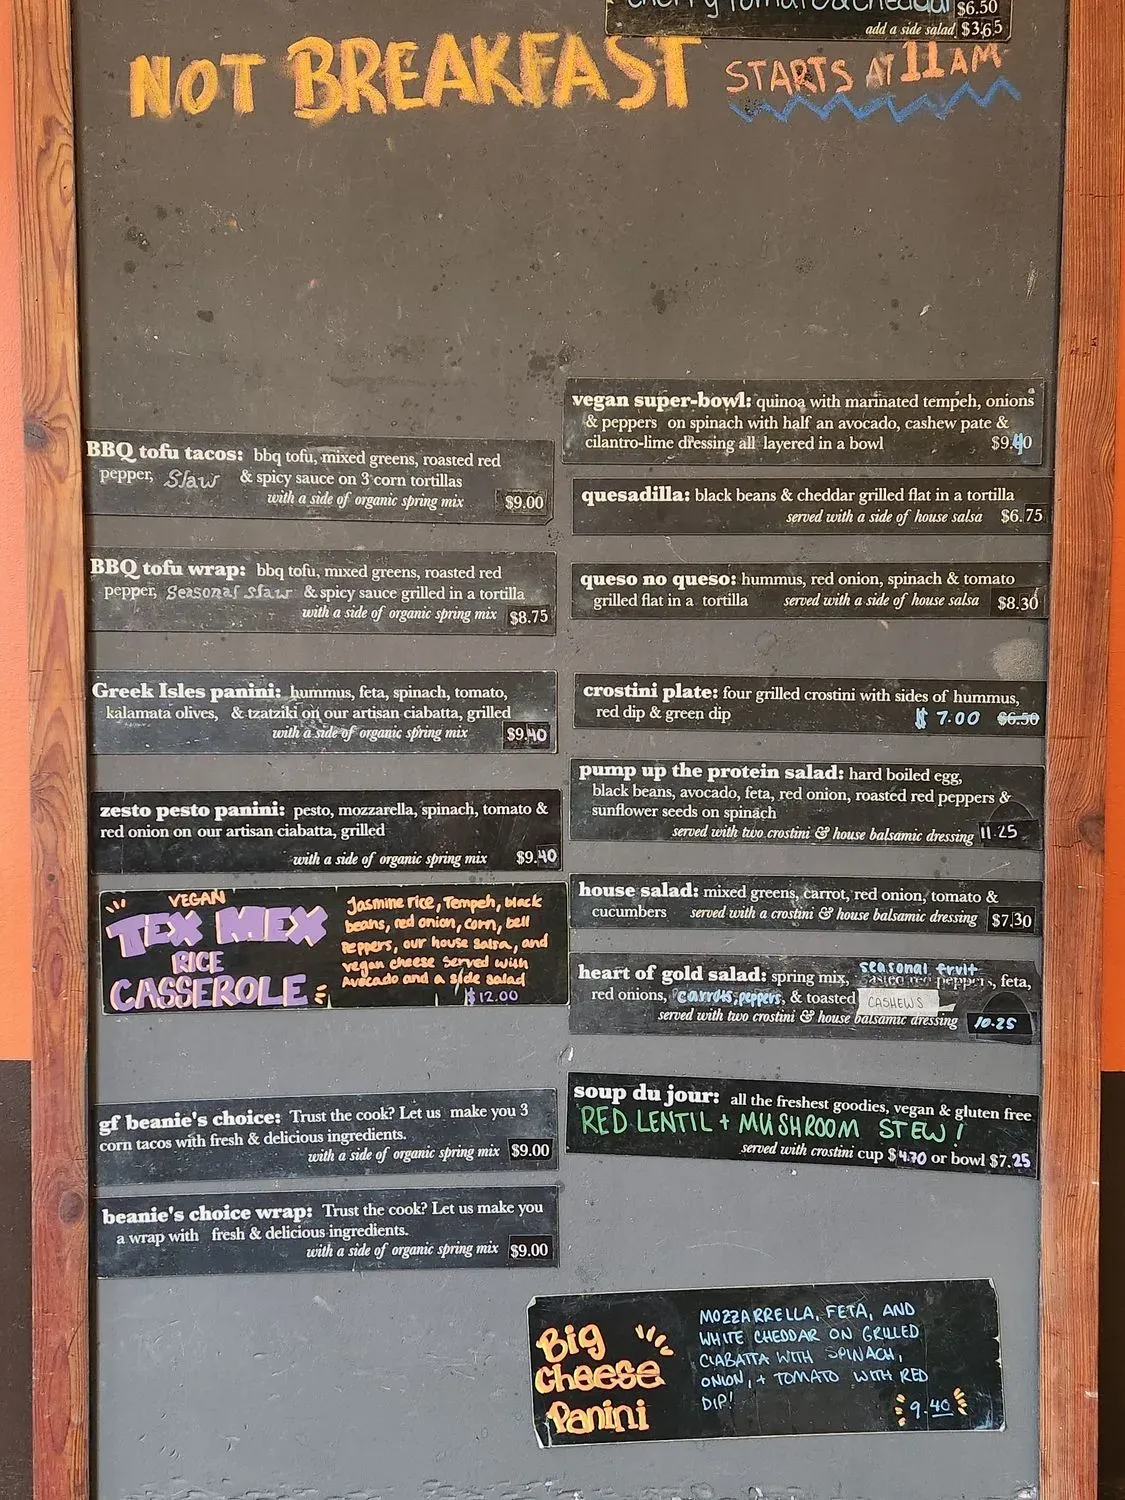 cherry tomato & cheddar $6.50
add a side salad $3.65
NOT BREAKFAST STARTS AT 11AM
BBQ tofu tacos: bbq tofu, mixed greens, roasted red
pepper, Slaw & spicy sauce on 3 corn tortillas
with a side of organic spring mix $9.00
BBQ tofu wrap: bbq tofu, mixed greens, roasted red
pepper, Seasonal Slaw & spicy sauce grilled in a tortilla
with a side of organic spring mix $8.75
Greek Isles panini: hummus, feta, spinach, tomato,
kalamata olives, & tzatziki on our artisan ciabatta, grilled
with a side of organic spring mix $9.40
zesto pesto panini: pesto, mozzarella, spinach, tomato &
red onion on our artisan ciabatta, grilled
with a side of organic spring mix $9.40
VEGAN
TEX MEX
RICE
CASSEROLE
Jasmine rice, Tempeh, black
beans, red onion, corn, bell
peppers, our house salsa, and
vegan cheese served with
Avocado and a side salad
$12.00
gf beanie's choice: Trust the cook? Let us make you 3
corn tacos with fresh & delicious ingredients.
with a side of organic spring mix $9.00
beanie's choice wrap: Trust the cook? Let us make you
a wrap with fresh & delicious ingredients.
with a side of organic spring mix $9.00
vegan super-bowl: quinoa with marinated tempeh, onions
& peppers on spinach with half an avocado, cashew pate &
cilantro-lime dressing all layered in a bowl $9.40
quesadilla: black beans & cheddar grilled flat in a tortilla
served with a side of house salsa $6.75
queso no queso: hummus, red onion, spinach & tomato
grilled flat in a tortilla served with a side of house salsa $8.30
crostini plate: four grilled crostini with sides of hummus,
red dip & green dip $7.00 $6.50
pump up the protein salad: hard boiled egg,
black beans, avocado, feta, red onion, roasted red peppers &
sunflower seeds on spinach
served with two crostini & house balsamic dressing 11.25
house salad: mixed greens, carrot, red onion, tomato &
cucumbers served with a crostini & house balsamic dressing $7.30
heart of gold salad: spring mix, seasonal fruit peppers, feta,
red onions, carrots, peppers, & toasted CASHEWS
served with two crostini & house balsamic dressing 10.25
soup du jour: all the freshest goodies, vegan & gluten free
RED LENTIL + MUSHROOM STEW!
served with crostini cup $4.70 or bowl $7.25
Big
Cheese
Panini
MOZZARRELLA, FETA, AND
WHITE CHEDDAR ON GRILLED
CIABATTA WITH SPINACH,
ONION, + TOMATO WITH RED
DIP!
9.40